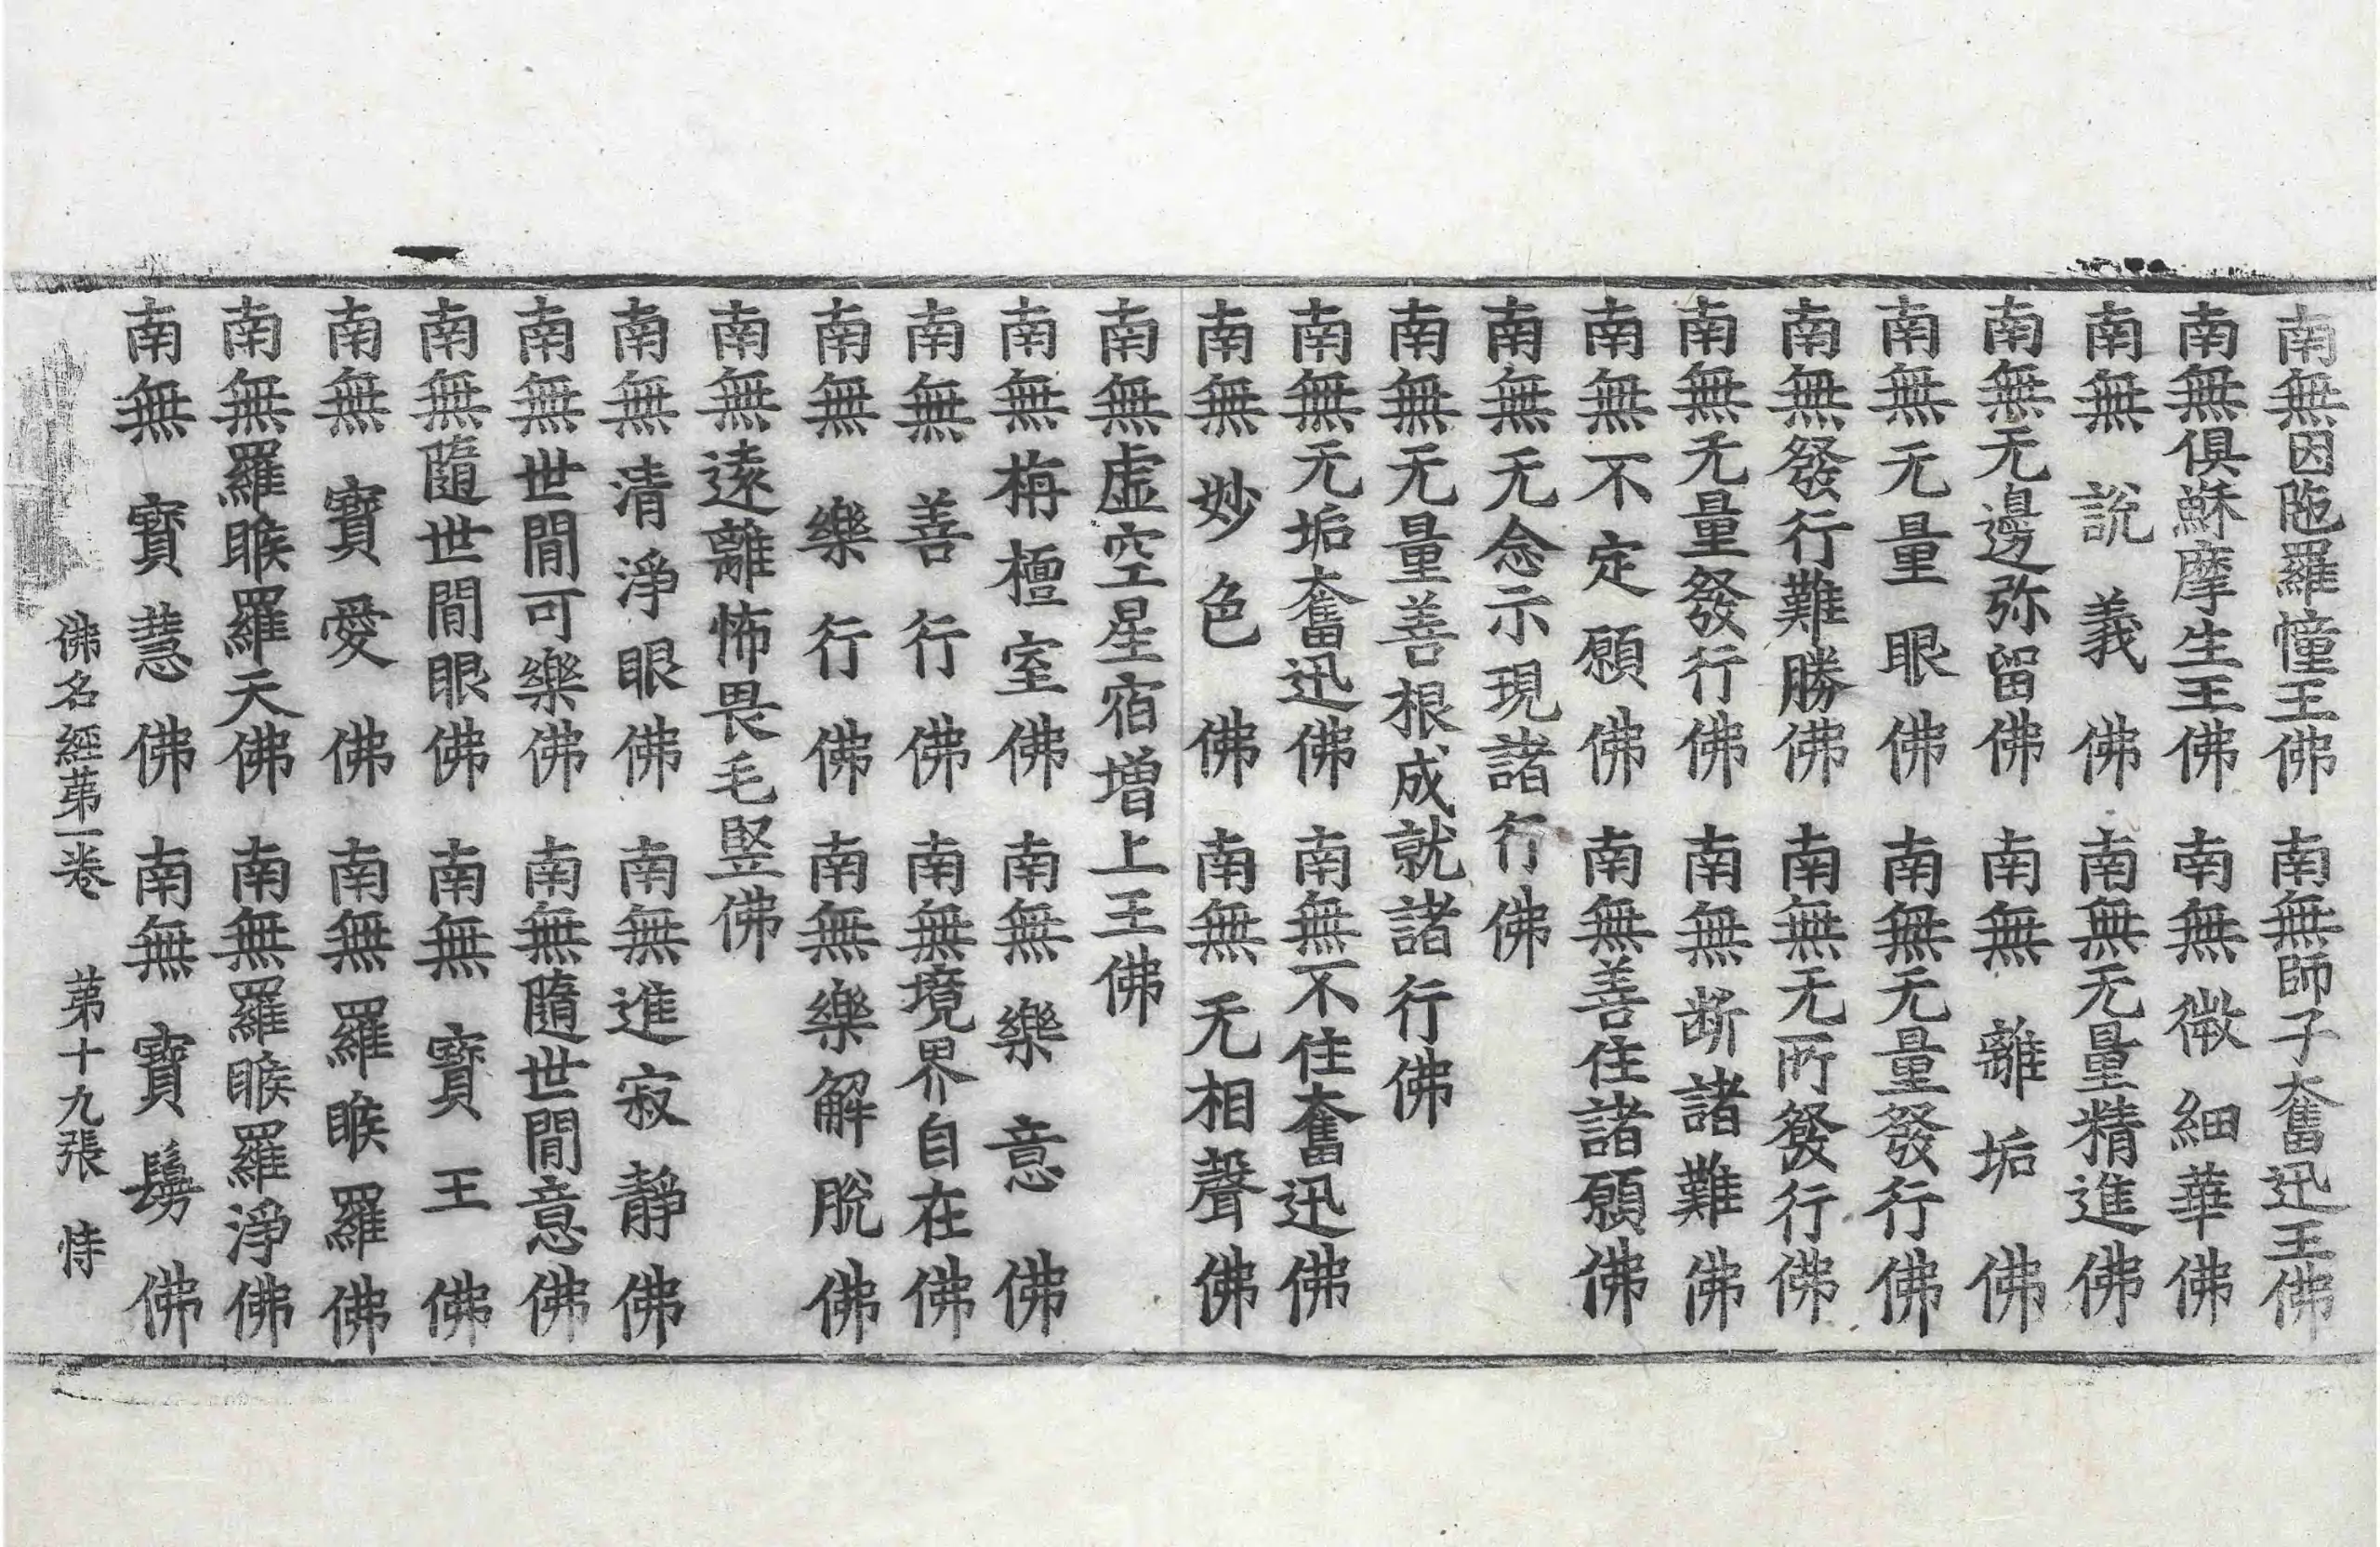 南無因陁羅憧王佛　南無師子奮迅王佛
南無俱蘇摩生王佛　南無微細華佛
南無說義佛　南無无量精進佛
南無无邊弥留佛　南無離垢佛
南無无量眼佛　南無无量發行佛
南無發行難勝佛　南無无所發行佛
南無无量發行佛　南無断諸難佛
南無不定願佛　南無善住諸願佛
南無无念示現諸行佛
南無无量善根成就諸行佛
南無无垢奮迅佛　南無不住奮迅佛
南無妙色佛　南無无相聲佛
南無虛空星宿增上王佛
南無栴檀室佛　南無樂意佛
南無善行佛　南無境界自在佛
南無樂行佛　南無樂解脫佛
南無遠離怖畏毛竪佛
南無清淨眼佛　南無進寂靜佛
南無世閒可樂佛　南無隨世閒意佛
南無隨世閒眼佛　南無寶王佛
南無寶愛佛　南無羅睺羅佛
南無羅睺羅天佛　南無羅睺羅淨佛
南無寶慧佛　南無寶髣佛
佛名經第一卷　第十九張　恃